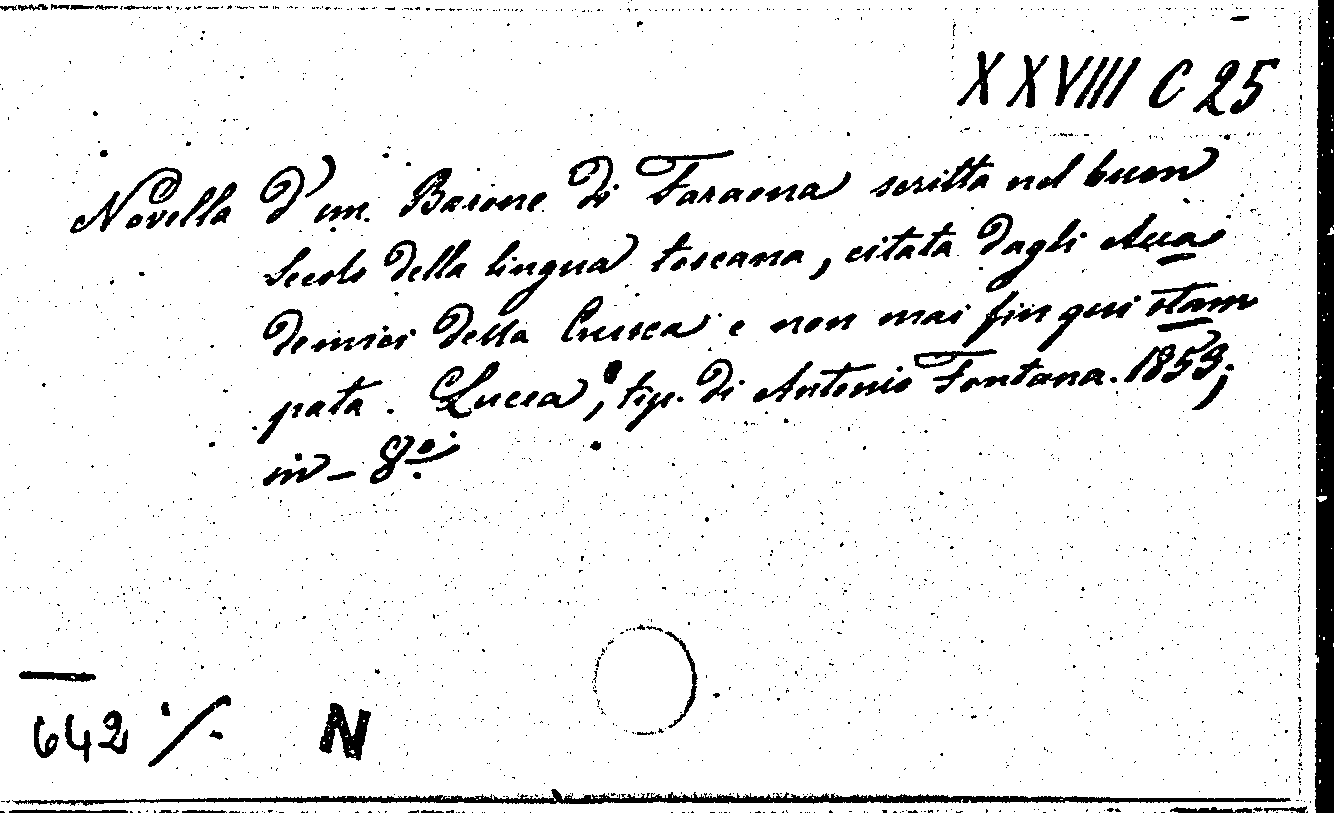 XXVIII C 25
Novella d'un Barone di Faraona scritta nel buon
secolo della lingua toscana, citata dagli Acca
demici della Crusca e non mai fin qui stam
pata. Lucca, tip. di Antonio Fontana. 1853;
in-8º.
642 %
N